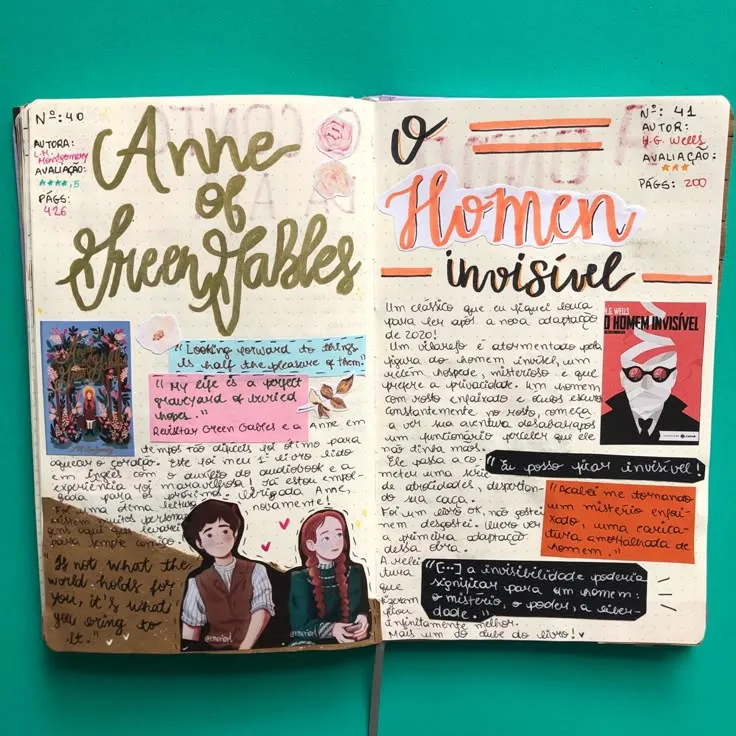 Nº: 40
AUTORA:
L.M.
Montgomery
AVALIAÇÃO:
★★★★,5
PÁGS:
426
Anne
of
Green Gables
"Looking forward to things
is half the pleasure of them."
"My life is a perfect
graveyard of buried
hopes."
Revisitar Green Gables e a
Anne em
tempos tão difíceis foi ótimo para
aquecer o coração. Este foi meu 1º livro lido
em inglês com o auxílio do audiobook e a
experiência foi maravilhosa! Já estou
para os próximos. Obrigada Anne,
Foi uma ótima leitura novamente!
existem muitos personagens
aqui que levarei
para sempre comigo.
"Is not what the
world holds for
you, it's what
you bring to
it."
Nº: 41
AUTOR:
H.G. Wells
AVALIAÇÃO:
★★★
PÁGS: 200
O
Homem
invisível
Um clássico que eu fiquei louca
para ler após a nova adaptação
de 2020!
Um vilarejo é atormentado pela
figura do homem invível, um
recém hospede, misterioso e que
prefere a privacidade. Um homem
com rosto enfaixado e óculos escuro
constantemente no rosto, começa
a ver sua aventura desabar após
um funcionário perceber que ele
não tinha mãos.
Ele passa a co-
meter uma série
de atrocidades, despertan-
do sua caça.
Foi um livro ok, não gostei
nem desgostei. Quero ver
a primeira adaptação
dessa obra.
A relei-
tura
que
fizeram
ficou
infinitamente melhor.
Mais um do clube do livro! ♥
H.G. WELLS
O HOMEM INVISÍVEL
"Eu posso ficar invisível!
"Acabei me tornando
um mistério enfai-
xado, uma carica-
tura amortalhada de
homem."
"[...] a invisibilidade poderia
significar para um homem:
o mistério, o poder, a liber-
dade."